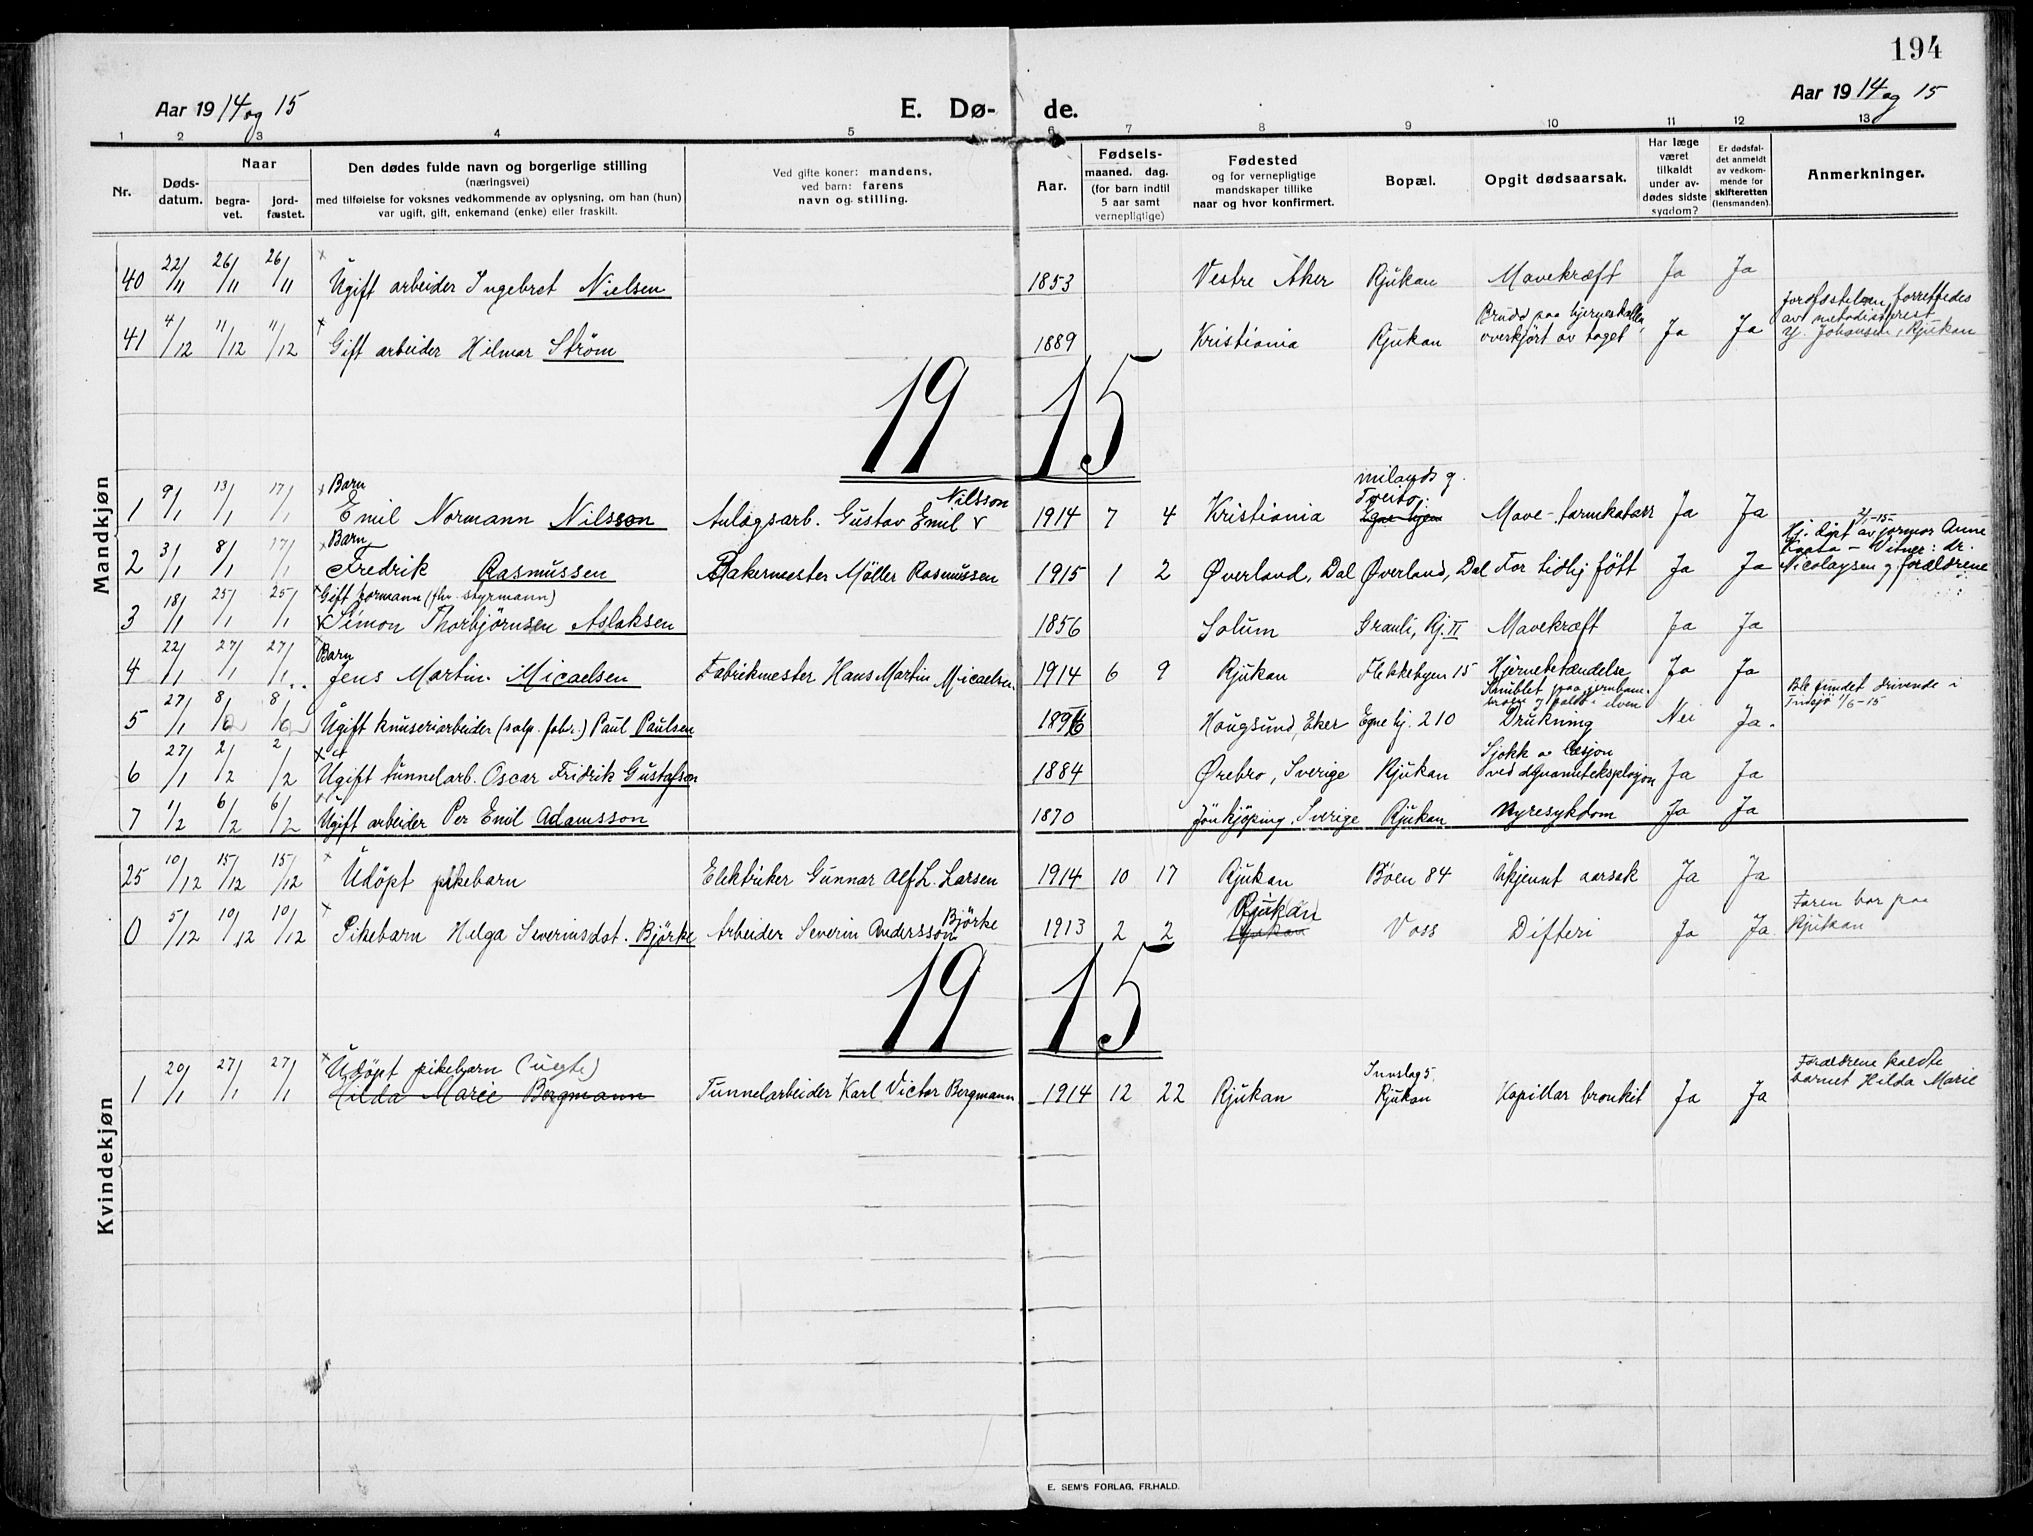 194
Aar 1914 og 15
E. Dø- de.
Aar 1914 og 15
1 2 3 4 5 6 7 8 9 10 11 12 13
Nr.
Døds-
datum.
Naar
begra-
vet.
jord-
fæstet.
Den dødes fulde navn og borgerlige stilling
(næringsvei)
med tilføielse for voksnes vedkommende av oplysning, om han (hun)
var ugift, gift, enkemand (enke) eller fraskilt.
Ved gifte koner: mandens,
ved barn: farens
navn og stilling.
Aar.
Fødsels-
maaned. dag.
(for barn indtil
5 aar samt
vernepligtige)
Fødested
og for vernepligtige
mandskaper tillike
naar og hvor konfirmert.
Bopæl.
Opgit dødsaarsak.
Har læge
været
tilkaldt
under av-
dødes sidste
sygdom?
Er dødsfal-
det anmeldt
av vedkom-
mende for
skifteretten
(lensmanden).
Anmerkninger.
Mandkjøn
40 22/11 26/11 26/11 Ugift arbeider Ingebret Nielsen 1853 Vestre Aker Rjukan Mavekræft Ja Ja
41 4/12 11/12 11/12 Gift arbeider Hilmar Strøm 1889 Kristiania Rjukan Brudd paa hjerneskallen,
overkjørt av toget Ja Ja Jordfæstelsen forrettedes
av metodistprest
Johansen, Rjukan
19 15
1 9/1 13/1 17/1 Barn
Emil Normann Nilsson Anlægsarb. Gustav Emil Nilsson 1914 7 4 Kristiania Milands g.
Tveito
Egne hjem Mave-tarmkatarr Ja Ja
2 3/1 8/1 17/1 Barn
Fredrik Rasmussen Bakermester Møller Rasmussen 1915 1 2 Øverland, Dal Øverland, Dal For tidlig fött Ja Ja Hj. döpt 2/1-15 av jormor Anne
Kaasa - Vitner: dr.
Nicolaysen og forældrene
3 18/1 25/1 25/1 Gift formann (fhv. styrmann)
Simon Thorbjörnsen Aslaksen 1856 Solum Grauli, Rj. II Mavekræft Ja Ja
4 22/1 27/1 27/1 Barn
Jens Martin Micaelsen Fabrikmester Hans Martin Micaelsen. 1914 6 9 Rjukan Flekkebyen 15 Hjernebetændelse Ja Ja
5 27/1 8/6 8/6 Ugift knuseriarbeider (salp. fabr.) Paul Paulsen 1896 Hougsund, Eker Egne hj. 210 Drukning Nei Ja. Ble fundet drivende i
Tinsjö 1/6-15
6 27/1 2/2 2/2 Ugift tunnelarb. Oscar Fridrik Gustafson 1884 Ørebro, Sverige Rjukan Sjokk og læsjon
ved dynamiteksplosjon Ja Ja
7 1/2 6/2 6/2 Ugift arbeider Per Emil Adamsson 1870 Jönkjöping, Sverige Rjukan Nyresykdom Ja Ja
Kvindekjøn
25 10/12 15/12 15/12 Udöpt pikebarn Elektriker Gunnar Alf L. Larsen 1914 10 17 Rjukan Bøen 84 Ukjennt aarsak Ja Ja
0 5/12 10/12 10/12 Pikebarn Helga Severinsdat. Björke Arbeider Severin Andersson Björke 1913 2 2 Rjukan
Rjukan Voss Difteri Ja Ja Faren bor paa
Rjukan
19 15
1 20/1 27/1 27/1 Udöpt pikebarn (uegte)
Hilda Marie Bergmann Tunnelarbeider Karl Victor Bergmann 1914 12 22 Rjukan Innslag 5.
Rjukan Kapillar bronkit Ja Ja Forældrene kaldte
barnet Hilda Marie
E. SEM'S FORLAG, FR.HALD.